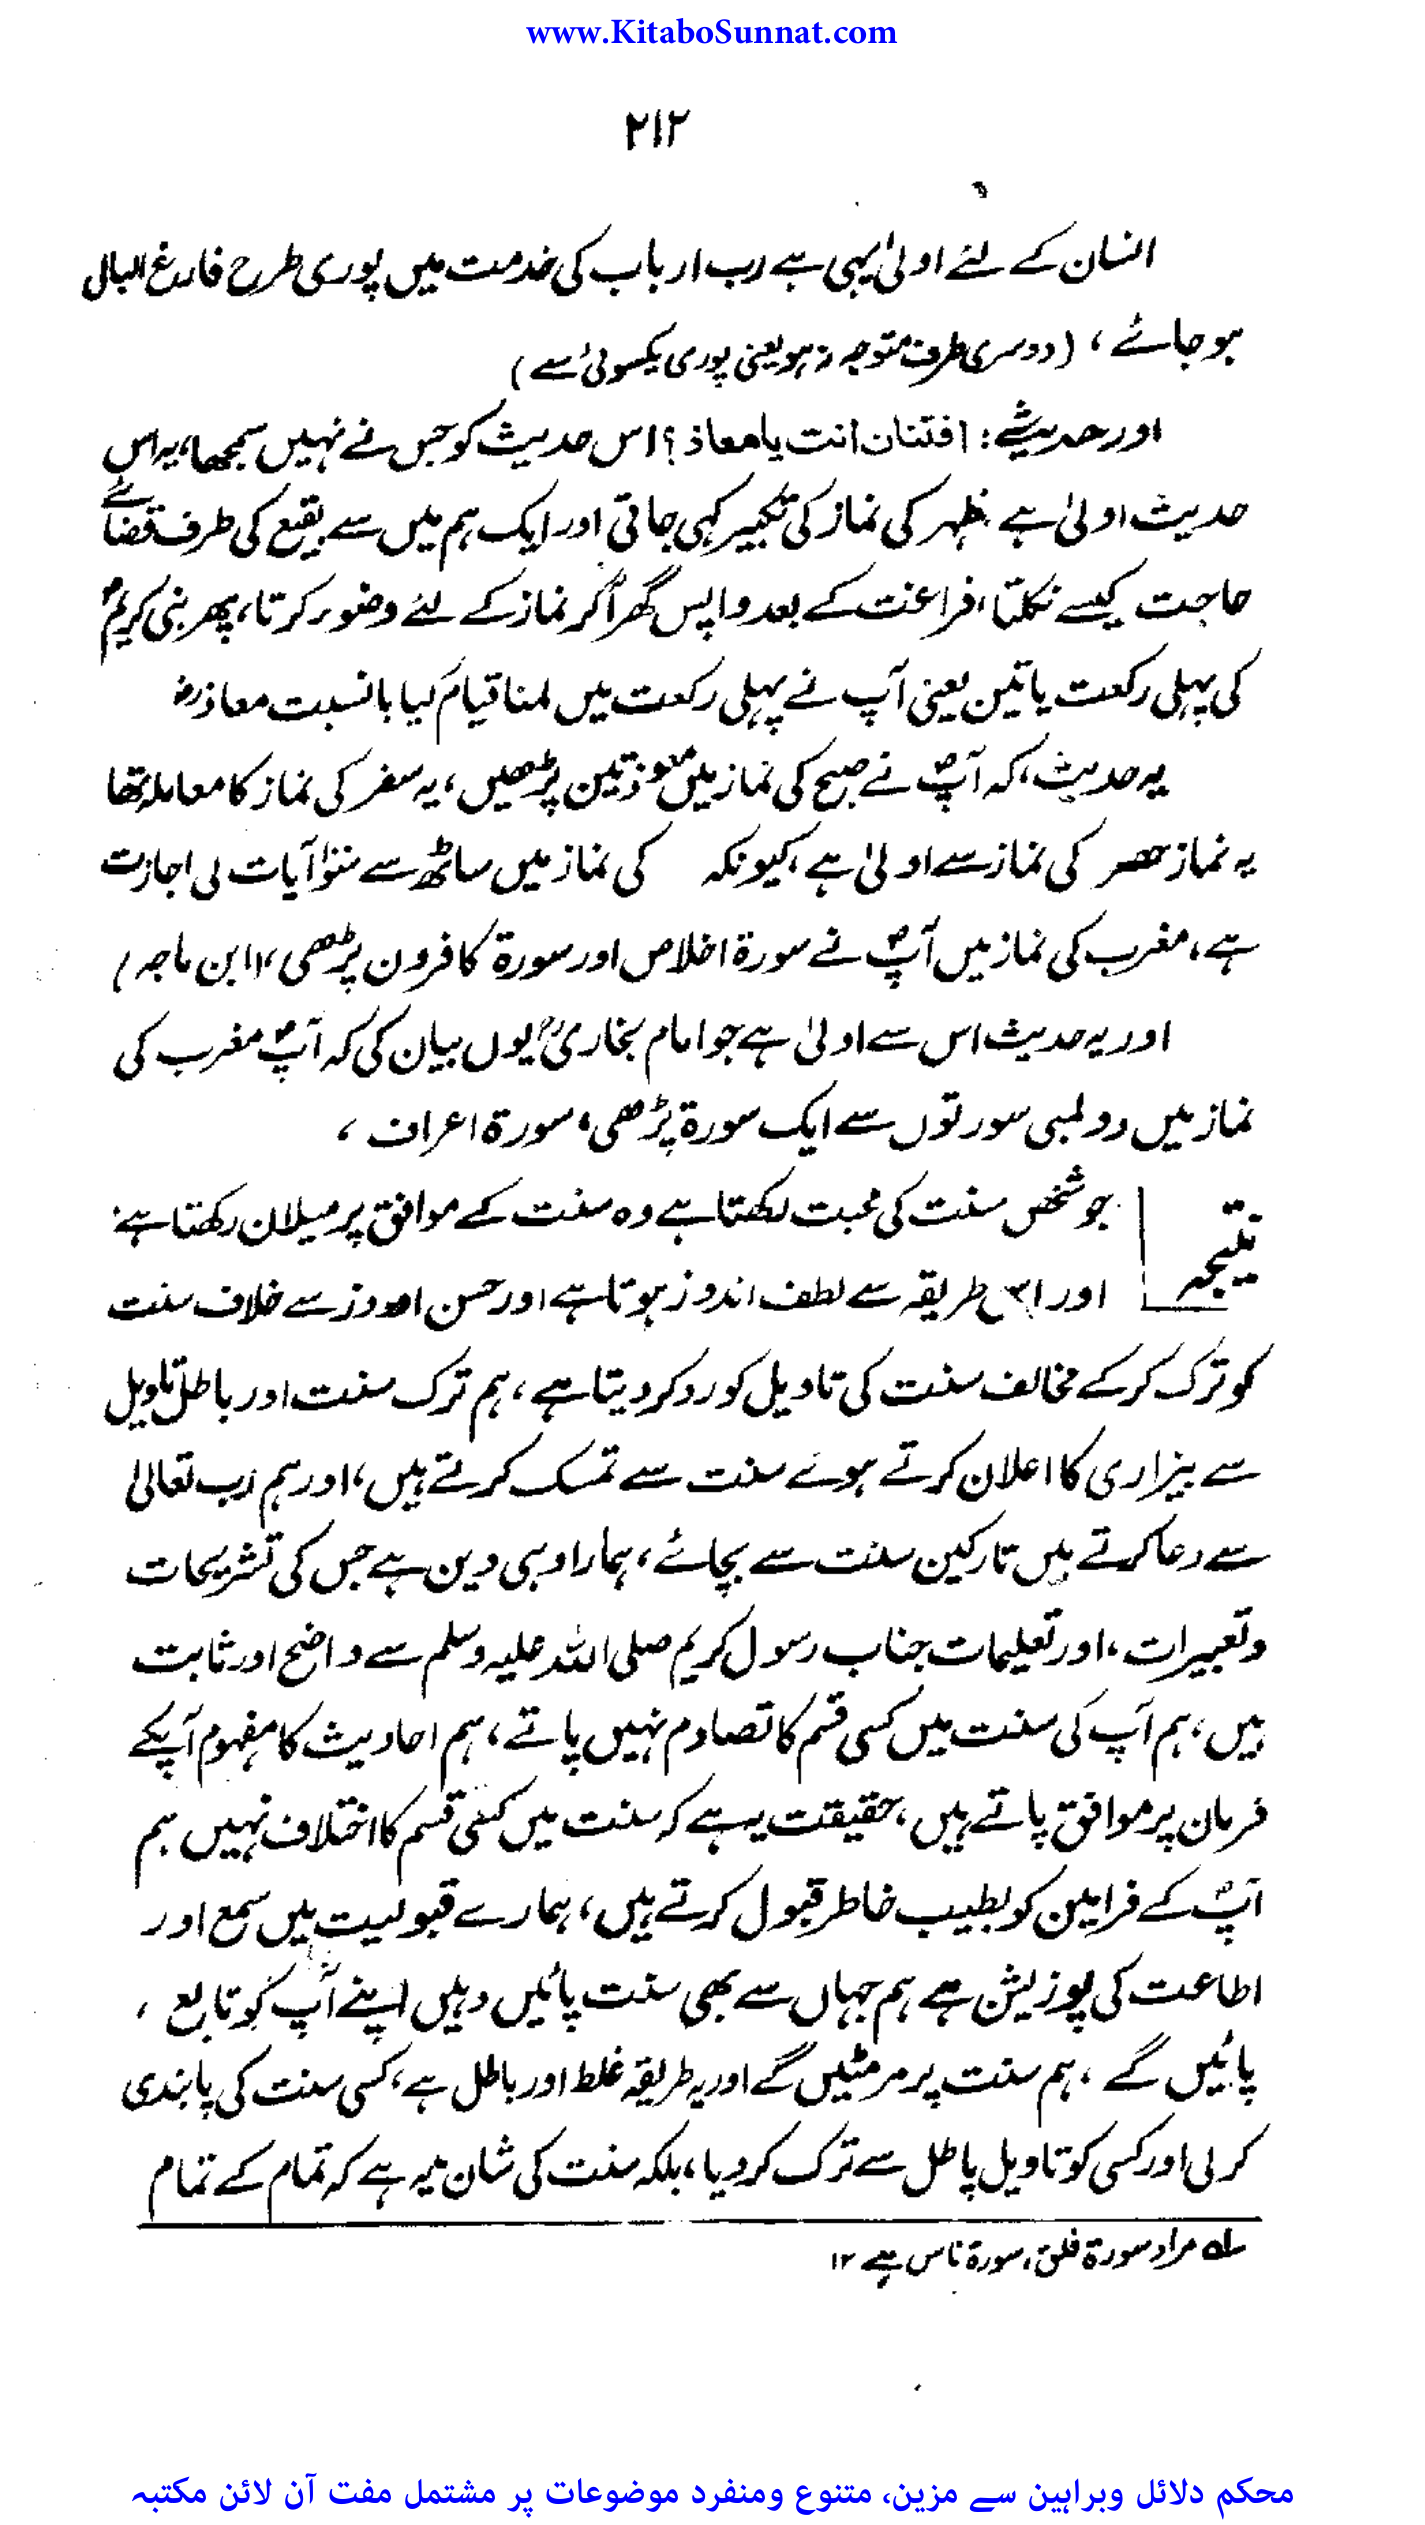 www.KitaboSunnat.com
۲۱۲
انسان کے لئے اولیٰ یہی ہے رب ارباب کی خدمت میں پوری طرح فارغ البال
ہو جائے، (دوسری طرف متوجہ نہ ہو یعنی پوری یکسوئی سے)
اور حدیث: افتنان انت یا معاذ؟ اس حدیث کو جس نے نہیں سمجھا، یہ اس
حدیث اولیٰ ہے ظہر کی نماز کی تکبیر کہی جاتی اور ایک ہم میں سے بقیع کی طرف قضائے
حاجت کیسے نکلتا، فراغت کے بعد واپس گھر آکر نماز کے لئے وضو کرتا، پھر نبی کریمؐ
کی پہلی رکعت پاتیں یعنی آپ نے پہلی رکعت میں لمبا قیام کیا بانسبت معاذؓ
یہ حدیث، کہ آپؐ نے صبح کی نماز میں معوذتین پڑھیں، یہ سفر کی نماز کا معاملہ تھا
یہ نماز حصر کی نماز سے اولیٰ ہے، کیونکہ کی نماز میں ساٹھ سے سو آیات لی اجازت
ہے، مغرب کی نماز میں آپؐ نے سورۃ اخلاص اور سورۃ کافرون پڑھی، (ابن ماجہ)
اور یہ حدیث اس سے اولیٰ ہے جو امام بخاریؒ یوں بیان کی کہ آپؐ مغرب کی
نماز میں دو لمبی سورتوں سے ایک سورۃ پڑھی، سورۃ اعراف ،
نتیجہ جو شخص سنت کی محبت رکھتا ہے وہ سنت کے موافق پر میلان رکھتا ہے
اور اس طریقہ سے لطف اندوز ہوتا ہے اور حسن اندوز سے خلاف سنت
کو ترک کرکے مخالف سنت کی تاویل کو رد کر دیتا ہے، ہم ترک سنت اور باطل تاویل
سے بیزاری کا اعلان کرتے ہوئے سنت سے تمسک کرتے ہیں، اور ہم رب تعالیٰ
سے دعا کرتے ہیں تارکین سنت سے بچائے، ہمارا وہی دین ہے جس کی تشریحات
و تعبیرات، اور تعلیمات جناب رسول کریم صلی اللہ علیہ وسلم سے واضح اور ثابت
ہیں، ہم آپ کی سنت میں کسی قسم کا تصادم نہیں پاتے، ہم احادیث کا مفہوم آپکے
فرمان پر موافق پاتے ہیں، حقیقت یہ ہے کہ سنت میں کسی قسم کا اختلاف نہیں ہم
آپؐ کے فرامین کو بطیب خاطر قبول کرتے ہیں، ہمارے قبولیت میں سمع اور
اطاعت کی پوزیشن ہے ہم جہاں سے بھی سنت پائیں وہیں اپنے آپ کو تابع ،
پائیں گے ، ہم سنت پر مر مٹیں گے اور یہ طریقہ غلط اور باطل ہے، کسی سنت کی پابندی
کر لی اور کسی کو تاویل باطل سے ترک کر دیا، بلکہ سنت کی شان یہ ہے کہ تمام کے تمام
لہ مراد سورۃ فلق، سورۃ ناس ہے ۱۲
محکم دلائل وبراہین سے مزین، متنوع ومنفرد موضوعات پر مشتمل مفت آن لائن مکتبہ